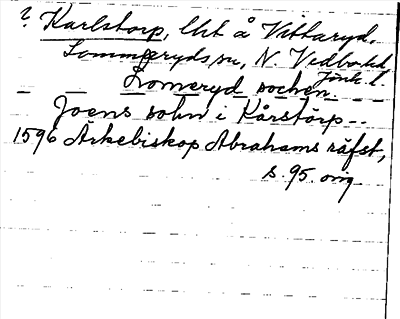 ? Karlstorp, lht å Vittaryd,
Lommaryds sn, N. Vedbo hd
Jönk. l.
Lomeryd sochen.
Joens sohn i Kårstörp--
1596 Ärkebiskop Abrahams räfst,
s. 95. orig